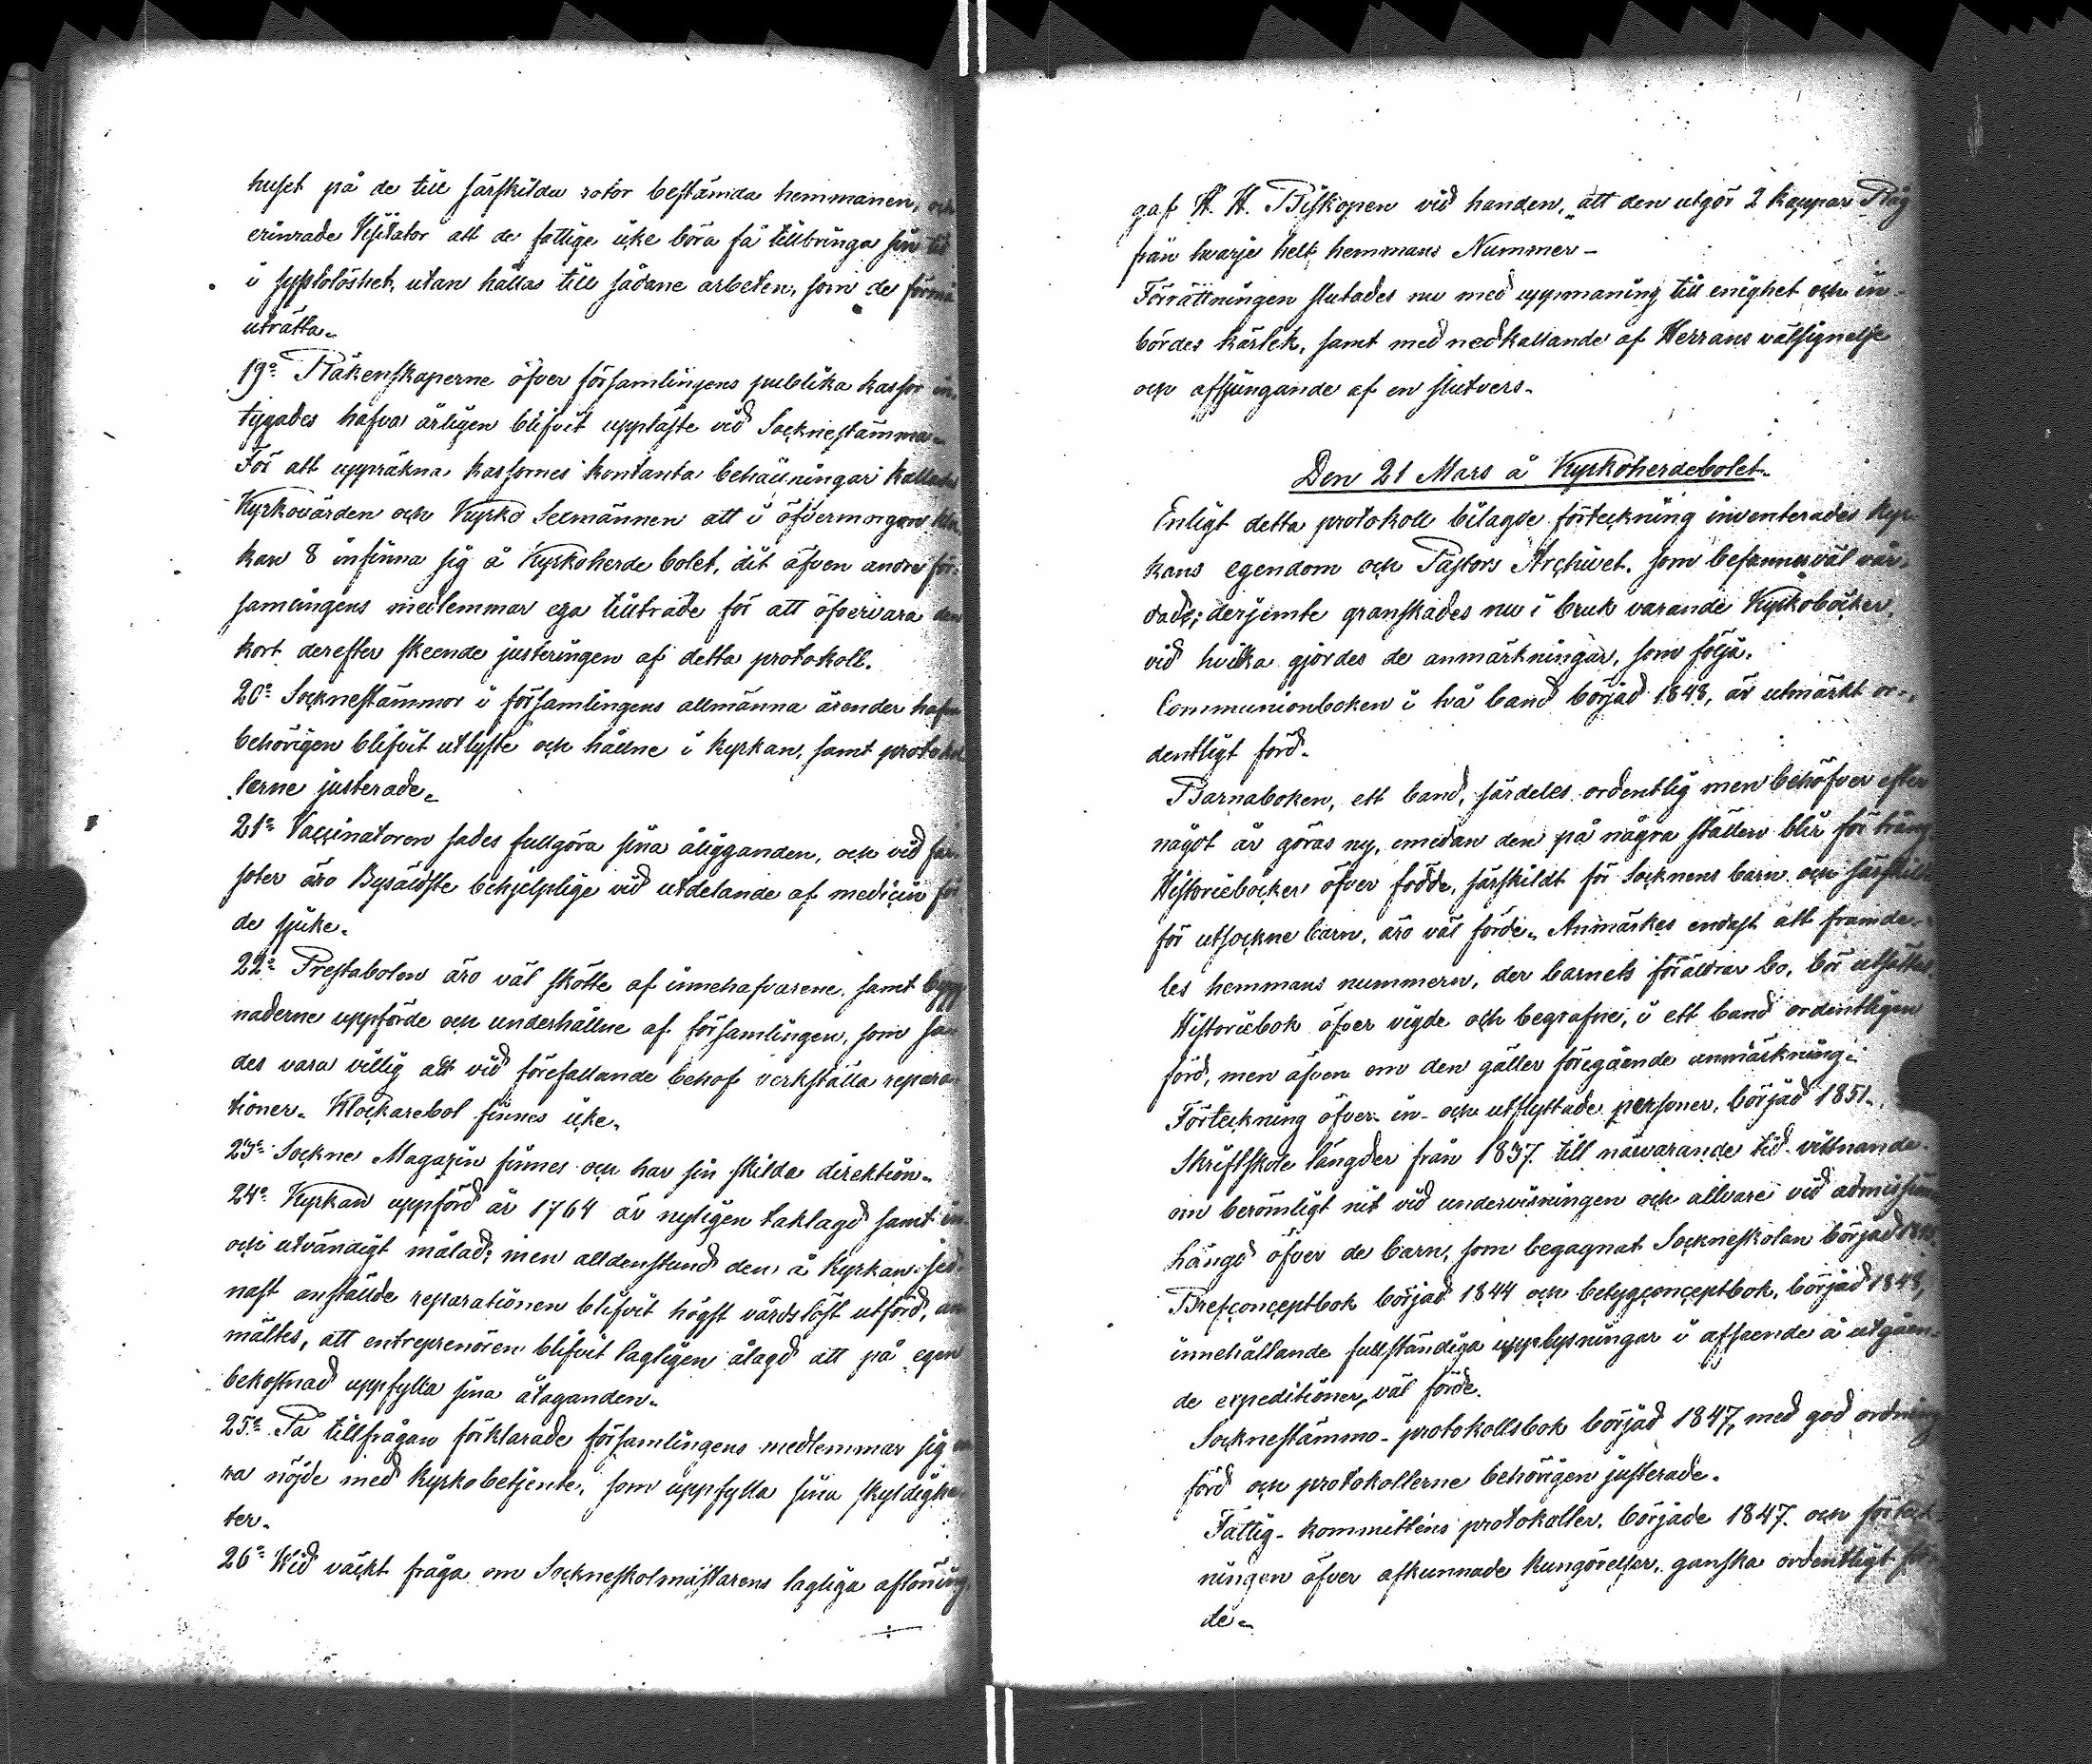 huset på de till särskilda rotor bestämda hemmanen, och
erinrade Visitator att de fattige icke böra få tillbringa sin tid
i sysslolöshet, utan hållas till sådane arbeten, som de förmå
uträtta.
19:o Räkenskaperne öfver församlingens publika kassor in-
tygades hafva årligen blifvit uppläste vid Socknestämma.
För att uppräkna kassornes kontanta behållningar kallades
Kyrkovärden och Kyrko Sexmännen att i öfvermorgon klo-
kan 8 infinna sig å Kyrkoherde bolet, dit äfven andre för-
samlingens medlemmar ega tillträde för att öfvervara den
kort derefter skeende justeringen af detta protokoll.
20:o Socknestämmor i församlingens allmänna ärender hafva
behörigen blifvit utlyste och hållne i kyrkan, samt protokol
lerne justerade.
21:o Vaccinatoren sades fullgöra sina åligganden, och vid far-
soter äro Byäldste behjelplige vid utdelande af medicin för
de sjuke.
22:o Prestabolen äro väl skötte af innehafvarene, samt bygg-
naderne uppförde och underhållne af församlingen, som sa-
des vara villig att vid förefallande behof verkställa repara-
tioner. Klockarebol finnes icke.
23:o Sockne Magazin finnes och har sin skilda direktion.
24:o Kyrkan uppförd år 1764 är nyligen taklagd samt in-
och utvändigt målad; men alldenstund den å Kyrkan sed-
nast anställde reparationen blifvit högst vårdslöst utförd, an-
mältes, att entreprenören blifvit lagligen ålagd att på egen
bekostnad uppfylla sina åtaganden.
25:o På tillfrågan förklarade församlingens medlemmar sig va-
ra nöjde med Kyrkobetjente, som uppfylla sina skyldighe-
ter.
26:o Wid väckt fråga om Sockneskolmästarens lagliga aflöning,
gaf H. H. Biskopen vid handen, "att den utgör 2 kappar Råg
från hvarje helt hemmans Nummer –
Förrättningen slutades nu med uppmaning till enighet och in-
bördes kärlek, samt med nedkallande af Herrans välsignelse
och afsjungande af en slutvers.
Den 21 Mars å Kyrkoherdebolet.
Enligt detta protokoll bilagde förteckning inventerades Kyr-
kans egendom och Pastors Archivet, som befanns väl vår-
dade; derjemte granskades nu i bruk varande Kyrkoböcker,
vid hvilka gjordes de anmärkningar, som följa.
Communionboken i två band börjad 1848, är utmärkt or-
dentligt förd.
Barnaboken, ett band, särdeles ordentlig men behöfver efter
något år göras ny, emedan den på några ställen blir för trång.
Historieböcker öfver födde, särskildt för Socknens barn och särskildt
för utsockne barn, äro väl förde. Anmärkes endast att framde-
les hemmans nummern, der barnets föräldrar bo, bör utsättas.
Historiebok öfver vigde och begrafne, i ett band ordentligen
förd, men äfven om den gäller föregående anmärkning.
Förteckning öfver in- och utflyttade personer, börjad 1851.
Skriftskole längder från 1837 till närvarande tid vittnande
om berömligt nit vid undervisningen och allvare vid admissionen
Längd öfver de barn, som begagnat Sockneskolan börjad
Brefconceptbok börjad 1844 och betygconceptbok, börjad 1848,
innehållande fullständiga upplysningar i afseende å utgåen-
de expeditioner, väl förde.
Socknestämmo-protokollsbok börjad 1847, med god ordning
förd och protokollerne behörigen justerade.
Fattig-kommitténs protokoller, började 1847 och förteck-
ningen öfver afkunnade kungörelser, ganska ordentligt för-
de.